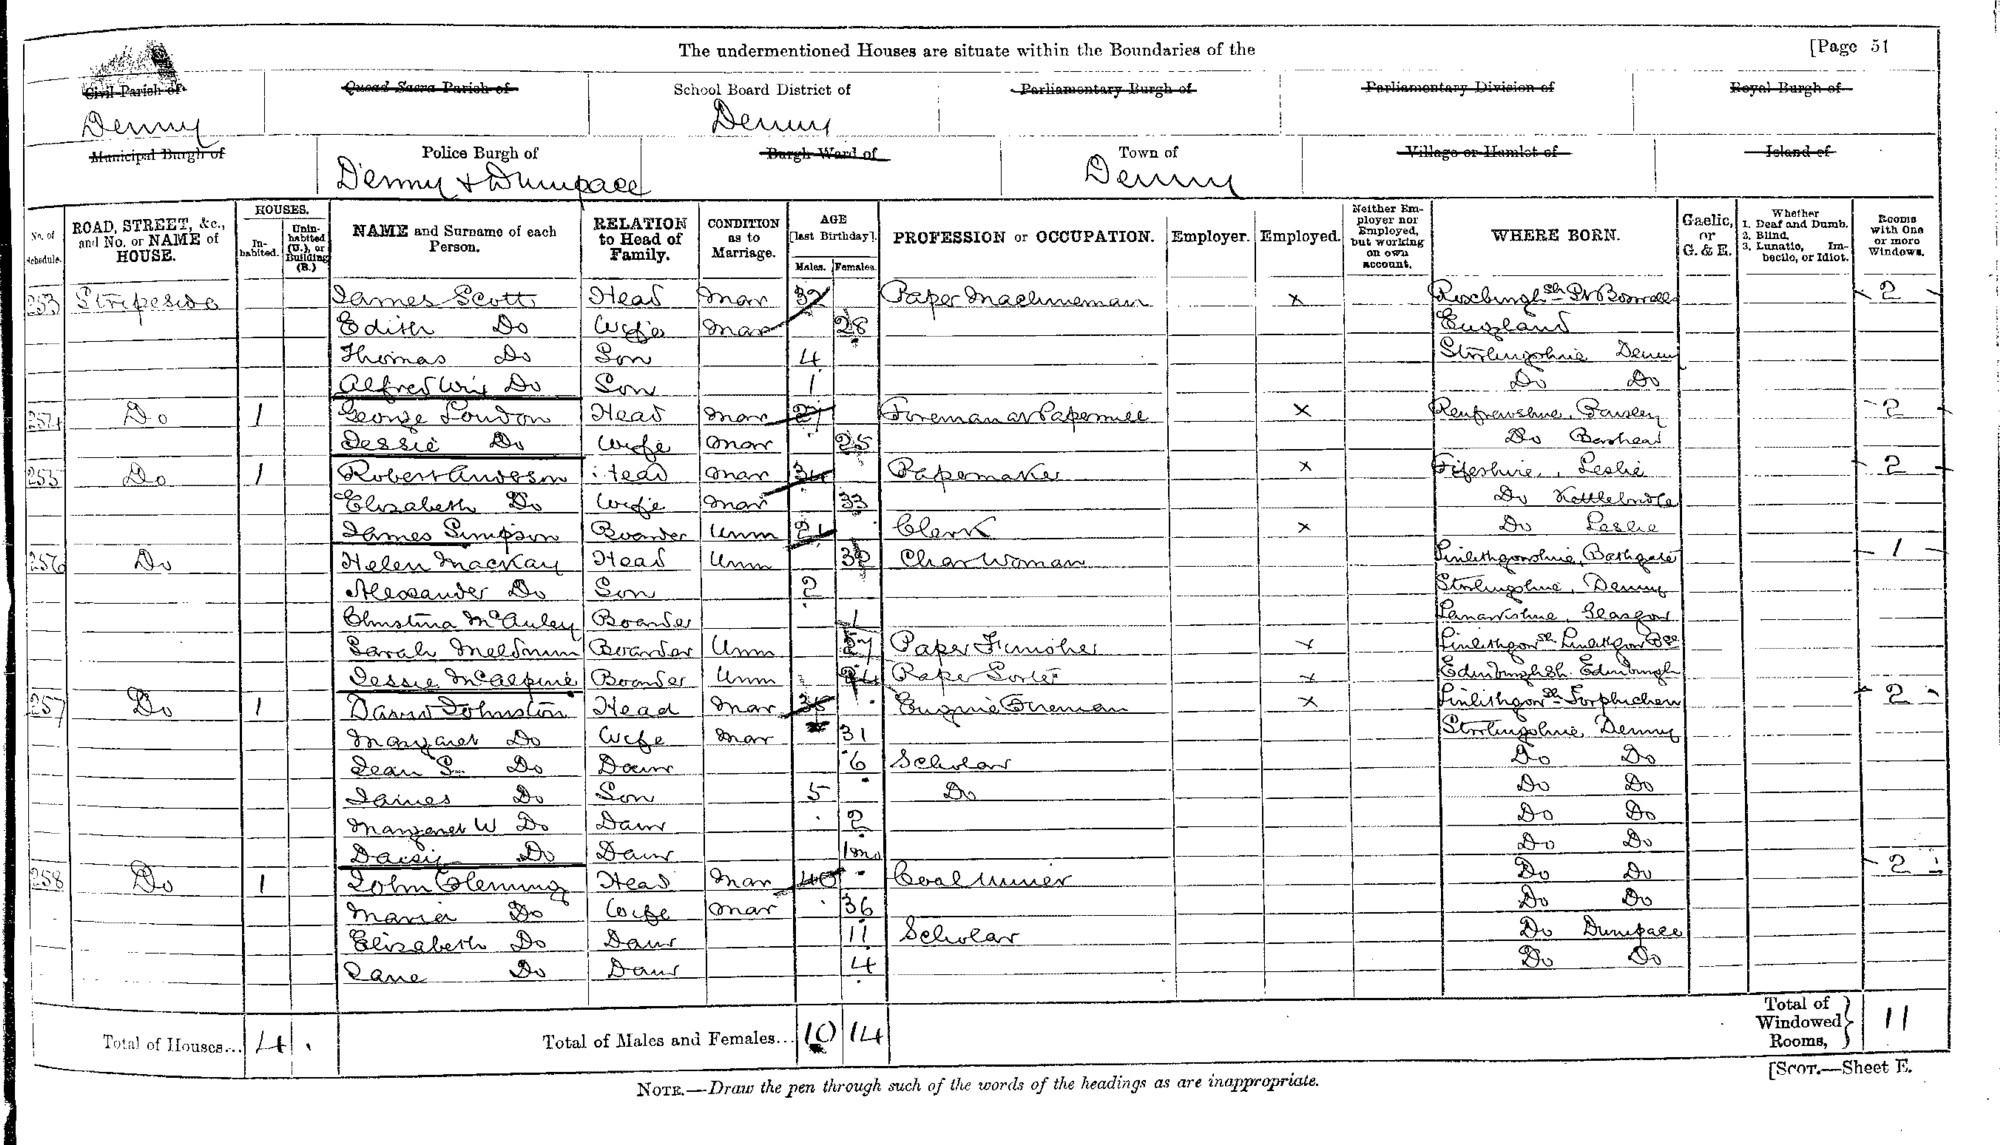 The undermentioned Houses are situate within the Boundaries of the [Page 51
Civil Parish of Quoad Sacra Parish of School Board District of Parliamentary Burgh of Parliamentary Division of Royal Burgh of
Denny Denny
Municipal Burgh of Police Burgh of Burgh Ward of Town of Village or Hamlet of Island of
Denny & Dunipace Denny
No. of Schedule. ROAD, STREET, &c., and No. or NAME of HOUSE. HOUSES. In-habited. Unin-habited (U.), or Building (B.) NAME and Surname of each Person. RELATION to Head of Family. CONDITION as to Marriage. AGE [last Birthday]. Males. Females. PROFESSION or OCCUPATION. Employer. Employed. Neither Employer nor Employed, but working on own account. WHERE BORN. Gaelic, or G. & E. Whether 1. Deaf and Dumb. 2. Blind. 3. Lunatic, Imbecile, or Idiot. Rooms with One or more Windows.
253 Stripeside James Scott Head Mar 32 Paper Machineman x Roxburghsh St Boswells 2
Edith Do Wife Mar 28 England
Thomas Do Son 4 Stirlingshire Denny
Alfred Wm Do Son 1 Do Do
254 Do 1 George Loudon Head Mar 27 Foreman at Papermill x Renfrewshire, Paisley 2
Jessie Do Wife Mar 25 Do Barrhead
255 Do 1 Robert Anderson Head Mar 34 Papermaker x Fifeshire, Leslie 2
Elizabeth Do Wife Mar 33 Do Kettlebridge
James Simpson Boarder Unm 21 Clerk x Do Leslie
256 Do Helen MacKay Head Unm 32 Char Woman Linlithgowshire, Bathgate 1
Alexander Do Son 2 Stirlingshire, Denny
Christina McAuley Boarder 1 Lanarkshire, Glasgow
Sarah Meldrum Boarder Unm 27 Paper Finisher x Linlithgowsh Linlithgow
Jessie McAlpine Boarder Unm 24 Paper Sorter x Edinburghsh. Edinburgh
257 Do 1 David Johnston Head Mar 35 Engine Fireman x Linlithgowsh Torphichen 2
Margaret Do Wife Mar 31 Stirlingshire, Denny
Jean S. Do Daur 6 Scholar Do Do
James Do Son 5 Do Do Do
Margaret W Do Daur 2 Do Do
Daisy Do Daur 1m Do Do
258 Do 1 John Fleming Head Mar 40 Coal Miner Do Do 2
Maria Do Wife Mar 36 Do Do
Elizabeth Do Daur 11 Scholar Do Dunipace
Jane Do Daur 4 Do Do
Total of Houses... 4 Total of Males and Females... 10 14 Total of Windowed Rooms, 11
NOTE.—Draw the pen through such of the words of the headings as are inappropriate. [SCOT.—Sheet E.